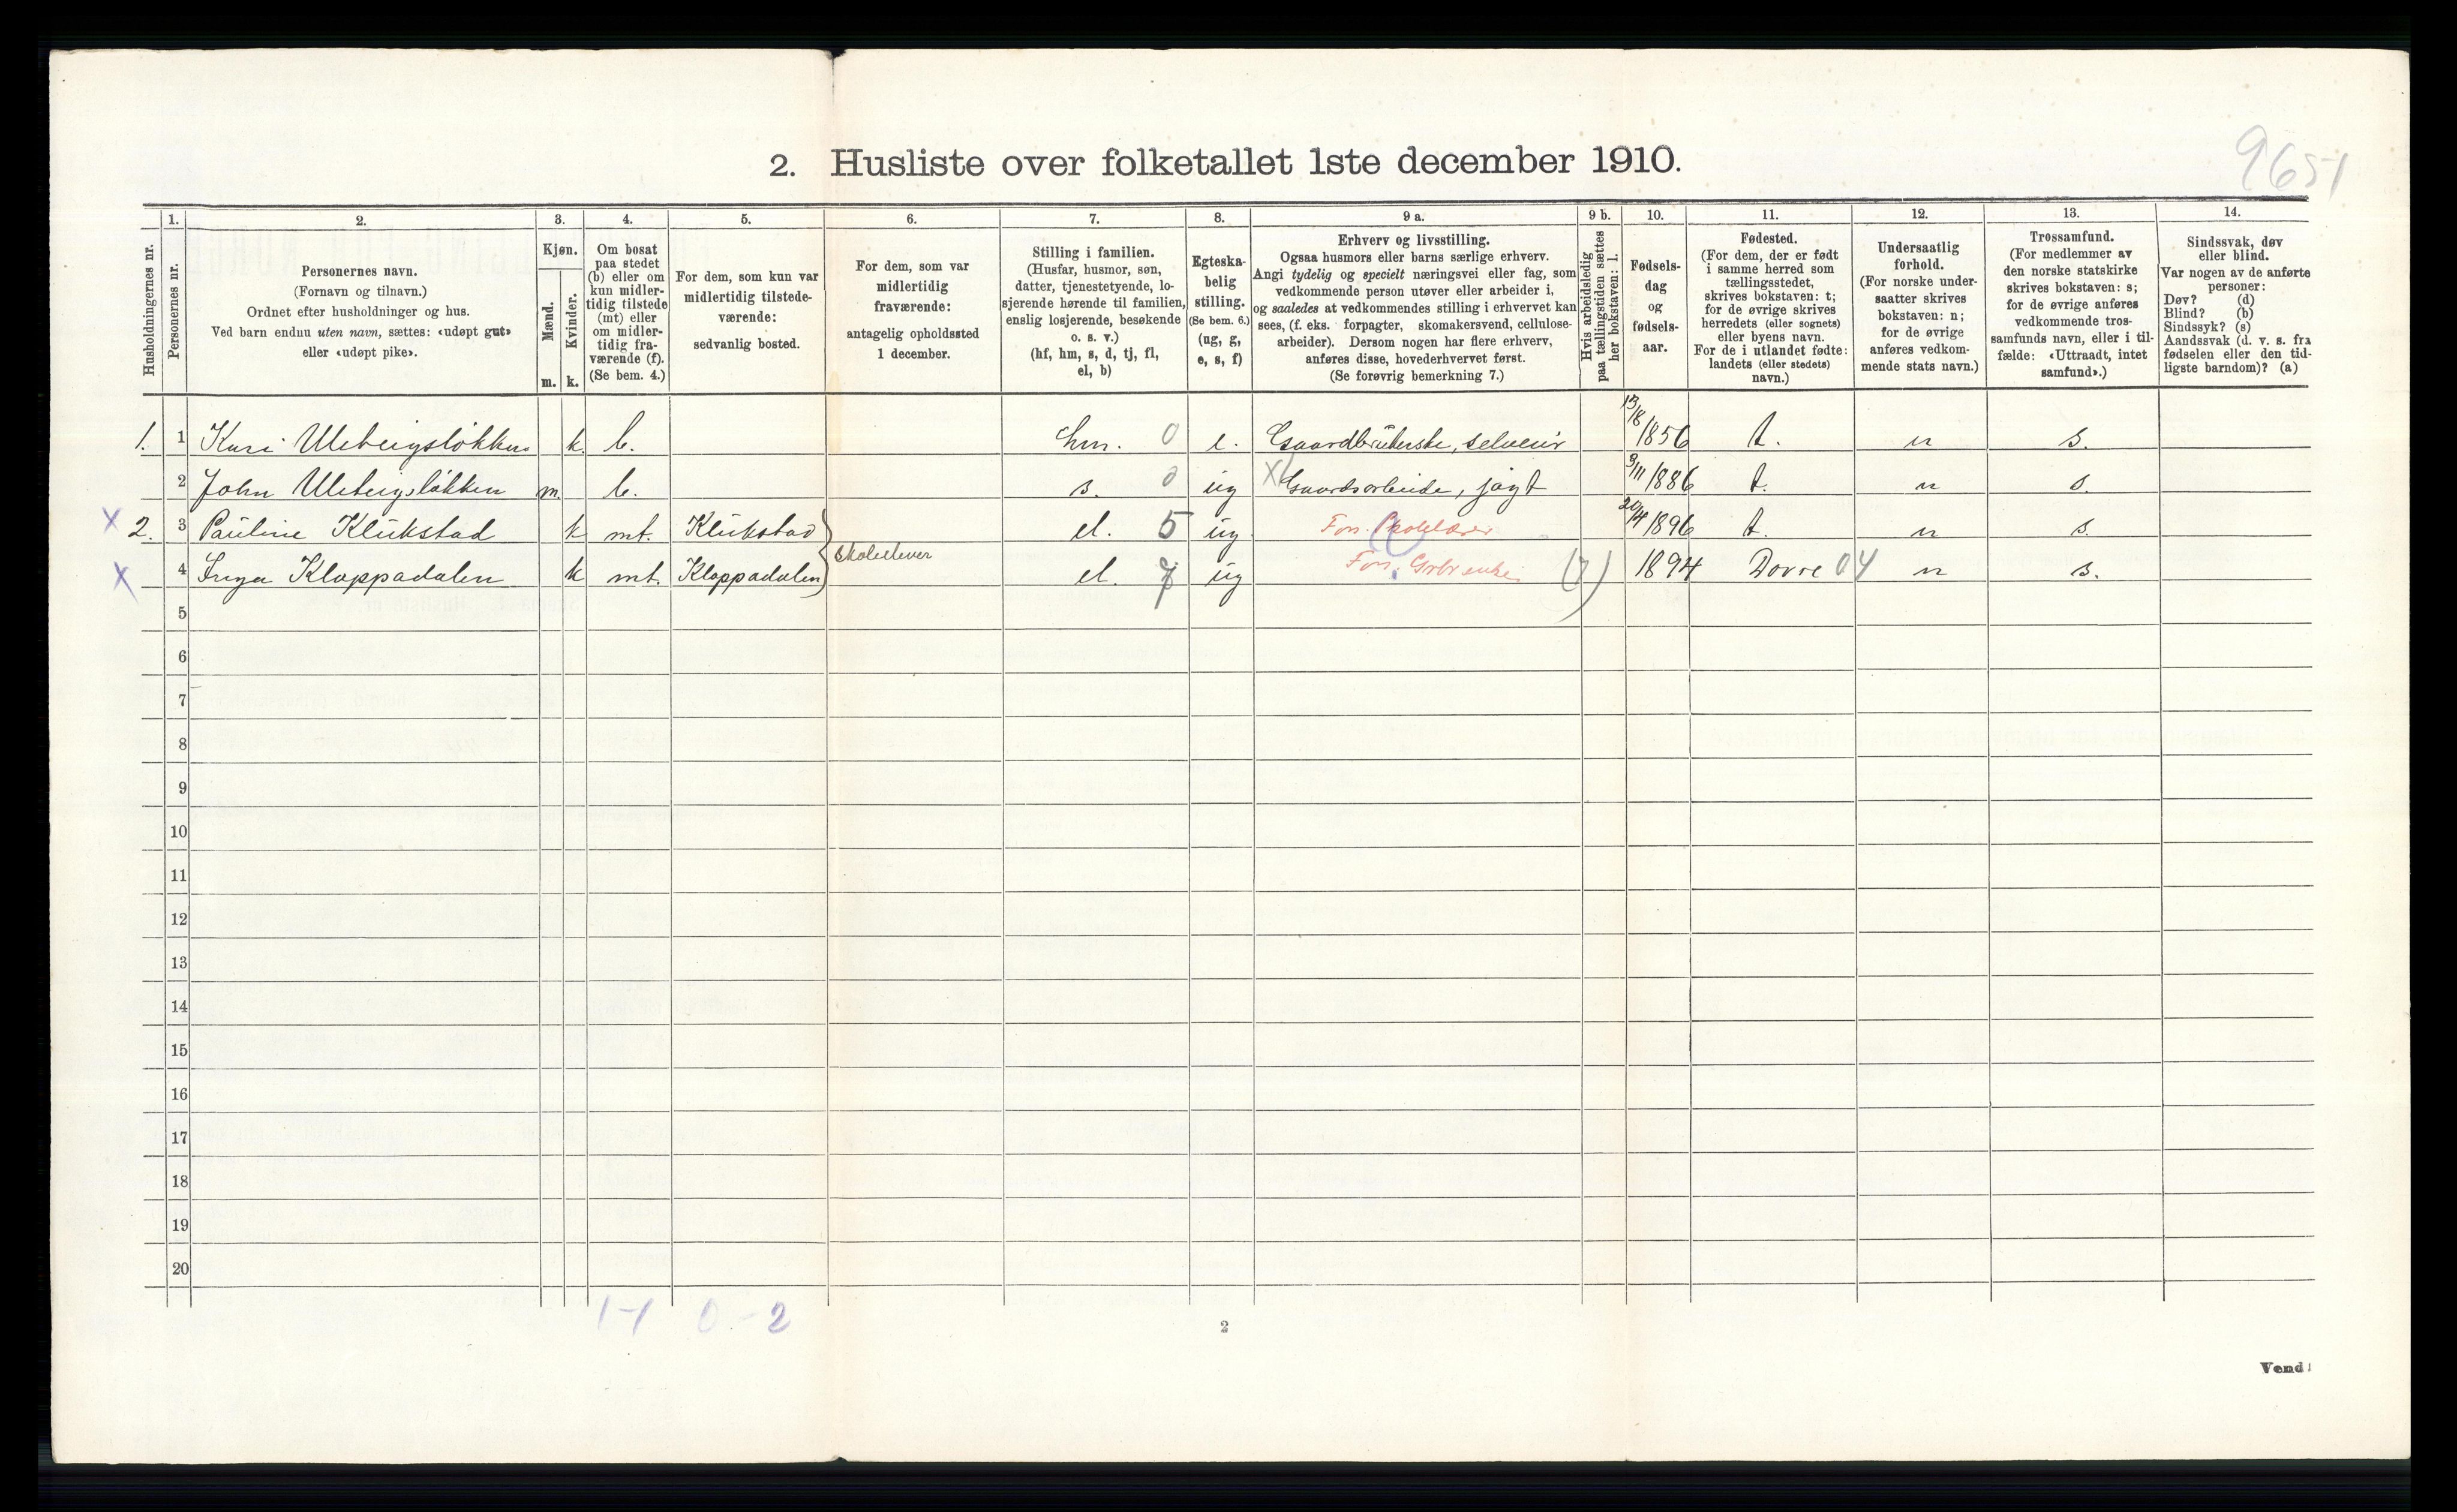 2. Husliste over folketallet 1ste december 1910.
9651
Husholdningernes nr.
1.
Personernes nr.
2.
Personernes navn.
(Fornavn og tilnavn.)
Ordnet efter husholdninger og hus.
Ved barn endnu uten navn, sættes: «udøpt gut»
eller «udøpt pike».
3.
Kjøn.
Mænd.
Kvinder.
m. k.
4.
Om bosat
paa stedet
(b) eller om
kun midler-
tidig tilstede
(mt) eller
om midler-
tidig fra-
værende (f).
(Se bem. 4.)
5.
For dem, som kun var
midlertidig tilstede-
værende:
sedvanlig bosted.
6.
For dem, som var
midlertidig
fraværende:
antagelig opholdssted
1 december.
7.
Stilling i familien.
(Husfar, husmor, søn,
datter, tjenestetyende, lo-
sjerende hørende til familien,
enslig losjerende, besøkende
o. s. v.)
(hf, hm, s, d, tj, fl,
el, b)
8.
Egteska-
belig
stilling.
(Se bem. 6.)
(ug, g,
e, s, f)
9 a.
Erhverv og livsstilling.
Ogsaa husmors eller barns særlige erhverv.
Angi tydelig og specielt næringsvei eller fag, som
vedkommende person utøver eller arbeider i,
og saaledes at vedkommendes stilling i erhvervet kan
sees, (f. eks. forpagter, skomakersvend, cellulose-
arbeider). Dersom nogen har flere erhverv,
anføres disse, hovederhvervet først.
(Se forøvrig bemerkning 7.)
9 b.
Hvis arbeidsledig
paa tællingstiden sættes
her bokstaven: l.
10.
Fødsels-
dag
og
fødsels-
aar.
11.
Fødested.
(For dem, der er født
i samme herred som
tællingsstedet,
skrives bokstaven: t;
for de øvrige skrives
herredets (eller sognets)
eller byens navn.
For de i utlandet fødte:
landets (eller stedets)
navn.)
12.
Undersaatlig
forhold.
(For norske under-
saatter skrives
bokstaven: n;
for de øvrige
anføres vedkom-
mende stats navn.)
13.
Trossamfund.
(For medlemmer av
den norske statskirke
skrives bokstaven: s;
for de øvrige anføres
vedkommende tros-
samfunds navn, eller i til-
fælde: «Uttraadt, intet
samfund».)
14.
Sindssvak, døv
eller blind.
Var nogen av de anførte
personer:
Døv? (d)
Blind? (b)
Sindssyk? (s)
Aandssvak (d. v. s. fra
fødselen eller den tid-
ligste barndom)? (a)
1. 1 Kari Ulebeigsløkken k. b. hm. 0 e. Gaardbrukerske, selveier 13/8 1856 t. n s.
2 John Ulebeigsløkken m. b. s. 0 ug X Gaardsarbeide, jagt 9/11 1886 t. n s.
X 2. 3 Pauline Klukstad k mt. Klukstad el. 5 ug. Fon. Skolelærer 20/4 1896 t. n s.
skoleelever
X 4 Inga Kloppadalen k mt. Kloppadalen el. 7 ug Fon. (7) 1894 Dovre 04 n s.
5
6
7
8
9
10
11
12
13
14
15
16
17
18
19
20
1-1 0-2
2
Vend!